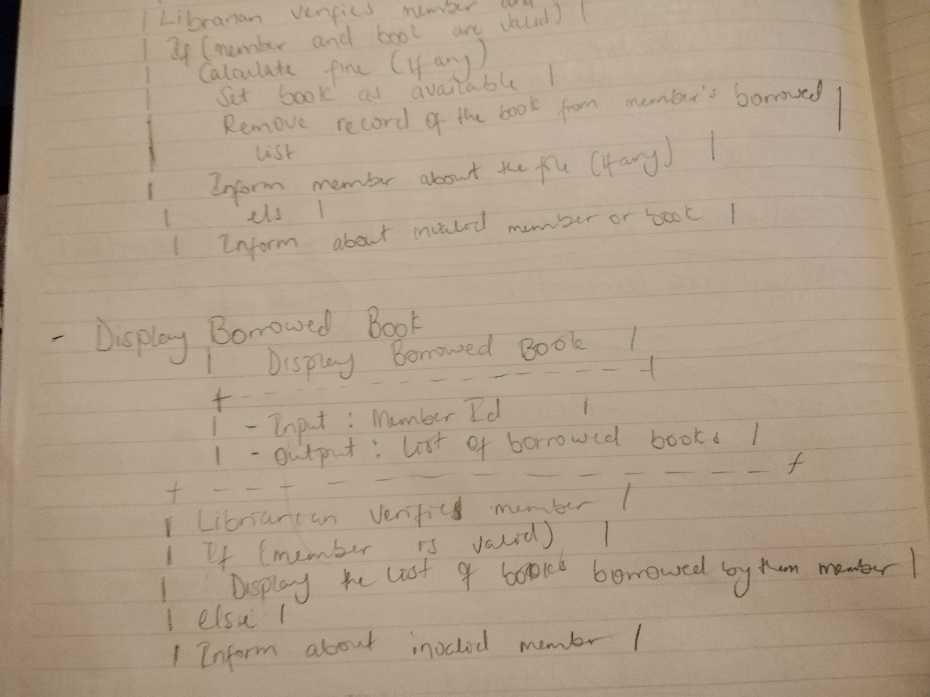 | Librarian verifies member and
| If (member and book are valid) |
| Calculate fine (if any)
| Set book as available |
| Remove record of the book from member's borrowed |
| list
| Inform member about the file (if any) |
| els |
| Inform about invalid member or book |
- Display Borrowed Book
| Display Borrowed Book |
+ - - - - - - - - - - - - +
| - Input : Member Id |
| - Output : List of borrowed books |
+ - - - - - - - - - - - - - +
| Librarian verifies member |
| If (member is valid) |
| Display the list of books borrowed by them member |
| else |
| Inform about invalid member |